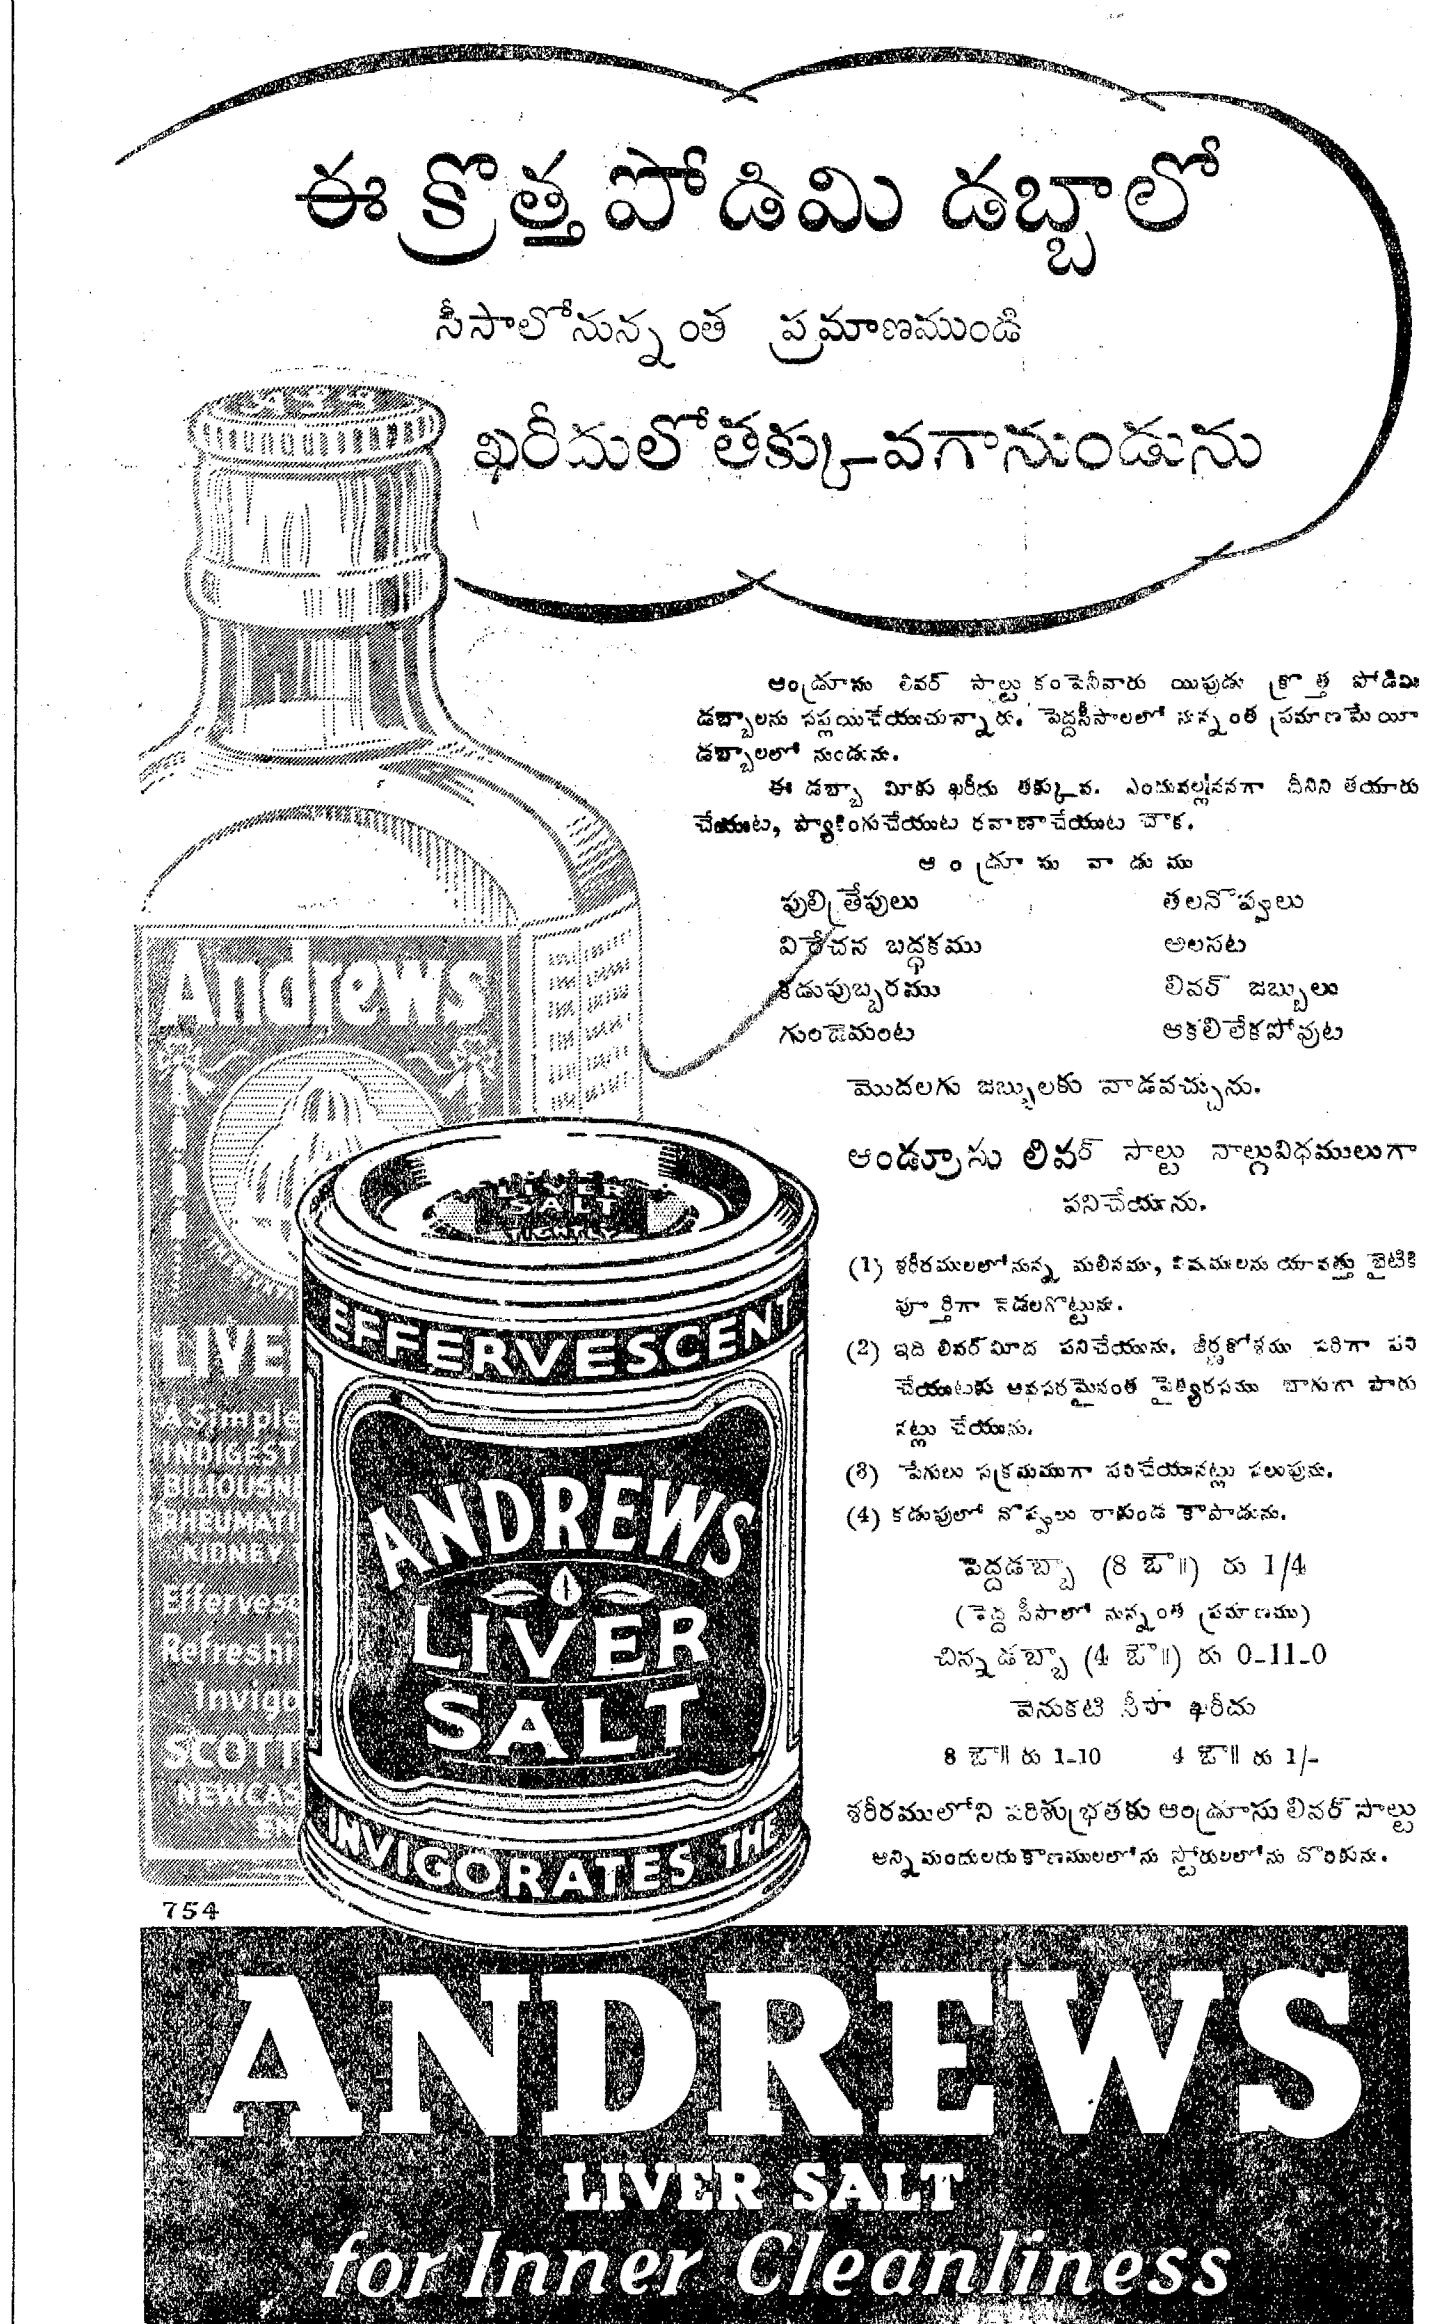 ఈ క్రొత్త పోడిమి డబ్బాలో
సీసాలోనున్నంత ప్రమాణముండి
ఖరీదులోతక్కువగానుండును
ఆండ్రూసు లివర్ సాల్టు కంపెనీవారు యిపుడు క్రొత్త పోడిమి
డబ్బాలను సప్లయిచేయుచున్నారు. పెద్దసీసాలలో నున్నంత ప్రమాణమే యీ
డబ్బాలలో నుండును.
ఈ డబ్బా మీకు ఖరీదు తక్కువ. ఎందువల్లననగా దీనిని తయారు
చేయుట, ప్యాకింగుచేయుట రవాణాచేయుట చౌక.
ఆండ్రూసు వాడుము
పులిత్రేపులు తలనొప్పులు
విరేచన బద్ధకము అలసట
కడుపుబ్బరము లివర్ జబ్బులు
గుండెమంట ఆకలిలేకపోవుట
మొదలగు జబ్బులకు వాడవచ్చును.
ఆండ్రూసు లివర్ సాల్టు నాల్గువిధములుగా
పనిచేయును.
(1) శరీరములలోనున్న మలినము, విషములను యావత్తు బైటికి
పూర్తిగా వెడలగొట్టును.
(2) ఇది లివర్‌మీద పనిచేయును. జీర్ణకోశము సరిగా పని
చేయుటకు అవసరమైనంత పైత్యరసము బాగుగా పారు
నట్లు చేయును.
(3) పేగులు సక్రమముగా పనిచేయునట్లు సలుపును.
(4) కడుపులో నొప్పులు రాకుండ కాపాడును.
పెద్దడబ్బా (8 ఔ॥) రు 1/4
(పెద్ద సీసాలో నున్నంత ప్రమాణము)
చిన్నడబ్బా (4 ఔ॥) రు 0-11-0
వెనుకటి సీసా ఖరీదు
8 ఔ॥ రు 1-10 4 ఔ॥ రు 1/-
శరీరములోని పరిశుభ్రతకు ఆండ్రూసు లివర్ సాల్టు
అన్ని మందులదుకాణములలోను స్టోరులలోను దొరికును.
Andrews
LIVE
A Simple
INDIGEST
BILIOUSN
RHEUMATI
KIDNEY
Effervesc
Refreshi
Invigo
SCOTT
NEWCAS
EN
LIVER
SALT
TIGHTLY
EFFERVESCENT
ANDREWS
LIVER
SALT
INVIGORATES THE
754
ANDREWS
LIVER SALT
for Inner Cleanliness